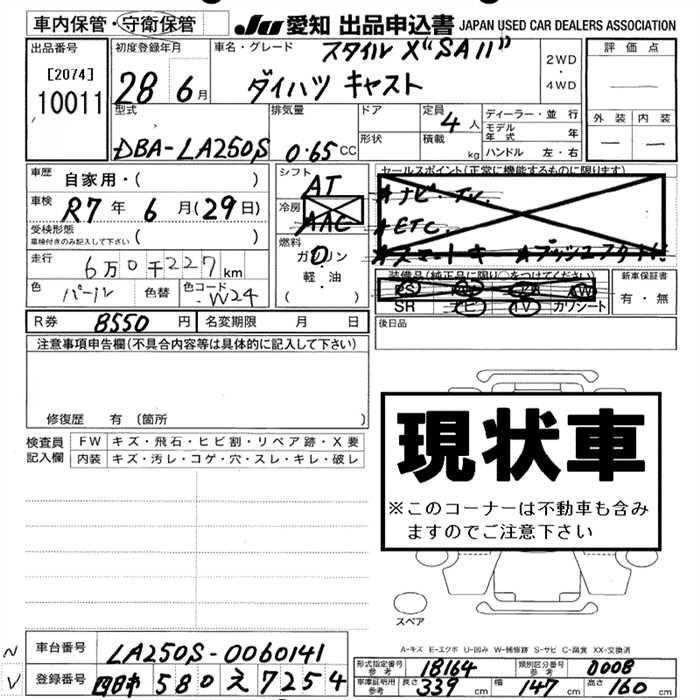 車内保管・守衛保管 JU 愛知 出品申込書 JAPAN USED CAR DEALERS ASSOCIATION
出品番号 [2074] 10011
初度登録年月 28 年 6月
車名・グレード スタイルX"SAII" ダイハツ キャスト
2WD・4WD
評価点 —
外装 — 内装 —
型式 DBA-LA250S
排気量 0.65CC
ドア
形状
定員 4人
積載 kg
ディーラー・並行
モデル年式 年
ハンドル 左・右
車歴 自家用・( )
車検 R7年 6月(29日)
受検形態 車検付きのみ記入して下さい ( )
走行 6万0千227km
色 パール 色替 色コード W24
シフト AT
冷房 AAC
燃料 ガソリン・軽・油 ( )
セールスポイント(正常に機能するものに限ります)
★ナビ・TV.
★ETC.
★スマートキー ★プッシュスタート
装備品(純正品に限り○をつけてください)
PS AW
SR ナビ TV カワシート
新車保証書 有・無
R券 8550円 名変期限 月 日
後日品
注意事項申告欄(不具合内容等は具体的に記入して下さい)
修復歴 有(箇所 )
検査員記入欄
FW キズ・飛石・ヒビ割・リペア跡・X要
内装 キズ・汚レ・コゲ・穴・スレ・キレ・破レ
現状車
※このコーナーは不動車も含み
ますのでご注意下さい
スペア
A-キズ E-エクボ U-凹み W-補修跡 S-サビ C-腐食 XX-交換済
車台番号 LA250S-0060141
登録番号 四日市 580 え 7254
形式指定番号 参考 18164 類別区分番号 参考 0008
車庫証明用 参考 長さ 339cm 幅 147cm 高さ 160cm